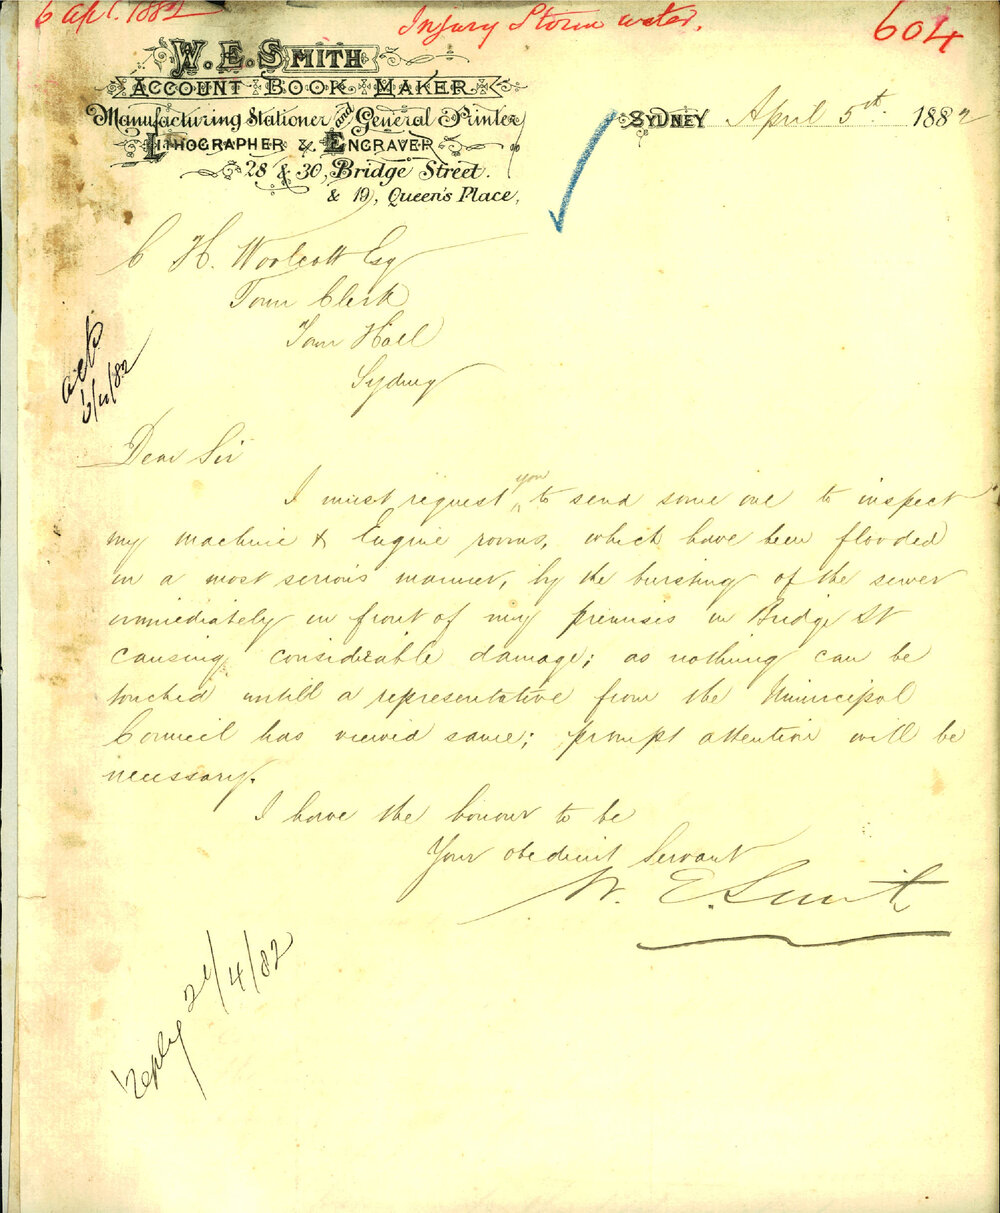 6 Apl. 1882
Injury Storm water.
604
W. E. Smith
Account Book Maker
Manufacturing Stationer and General Printer
Lithographer & Engraver
28 & 30, Bridge Street.
& 19, Queen's Place,
Sydney April 5th 1882
C H. Woolcott Esq
Town Clerk
Town Hall
Sydney
6/4/82
Dear Sir
I must request you to send some one to inspect
my machine & Engine rooms, which have been flooded
in a most serious manner, by the bursting of the sewer
immediately in front of my premises in Bridge St
causing considerable damage; as nothing can be
touched untill a representative from the Municipal
Council has viewed same; prompt attention will be
necessary.
I have the honour to be
Your obedient Servant
W. E. Smith
reply 21/4/82